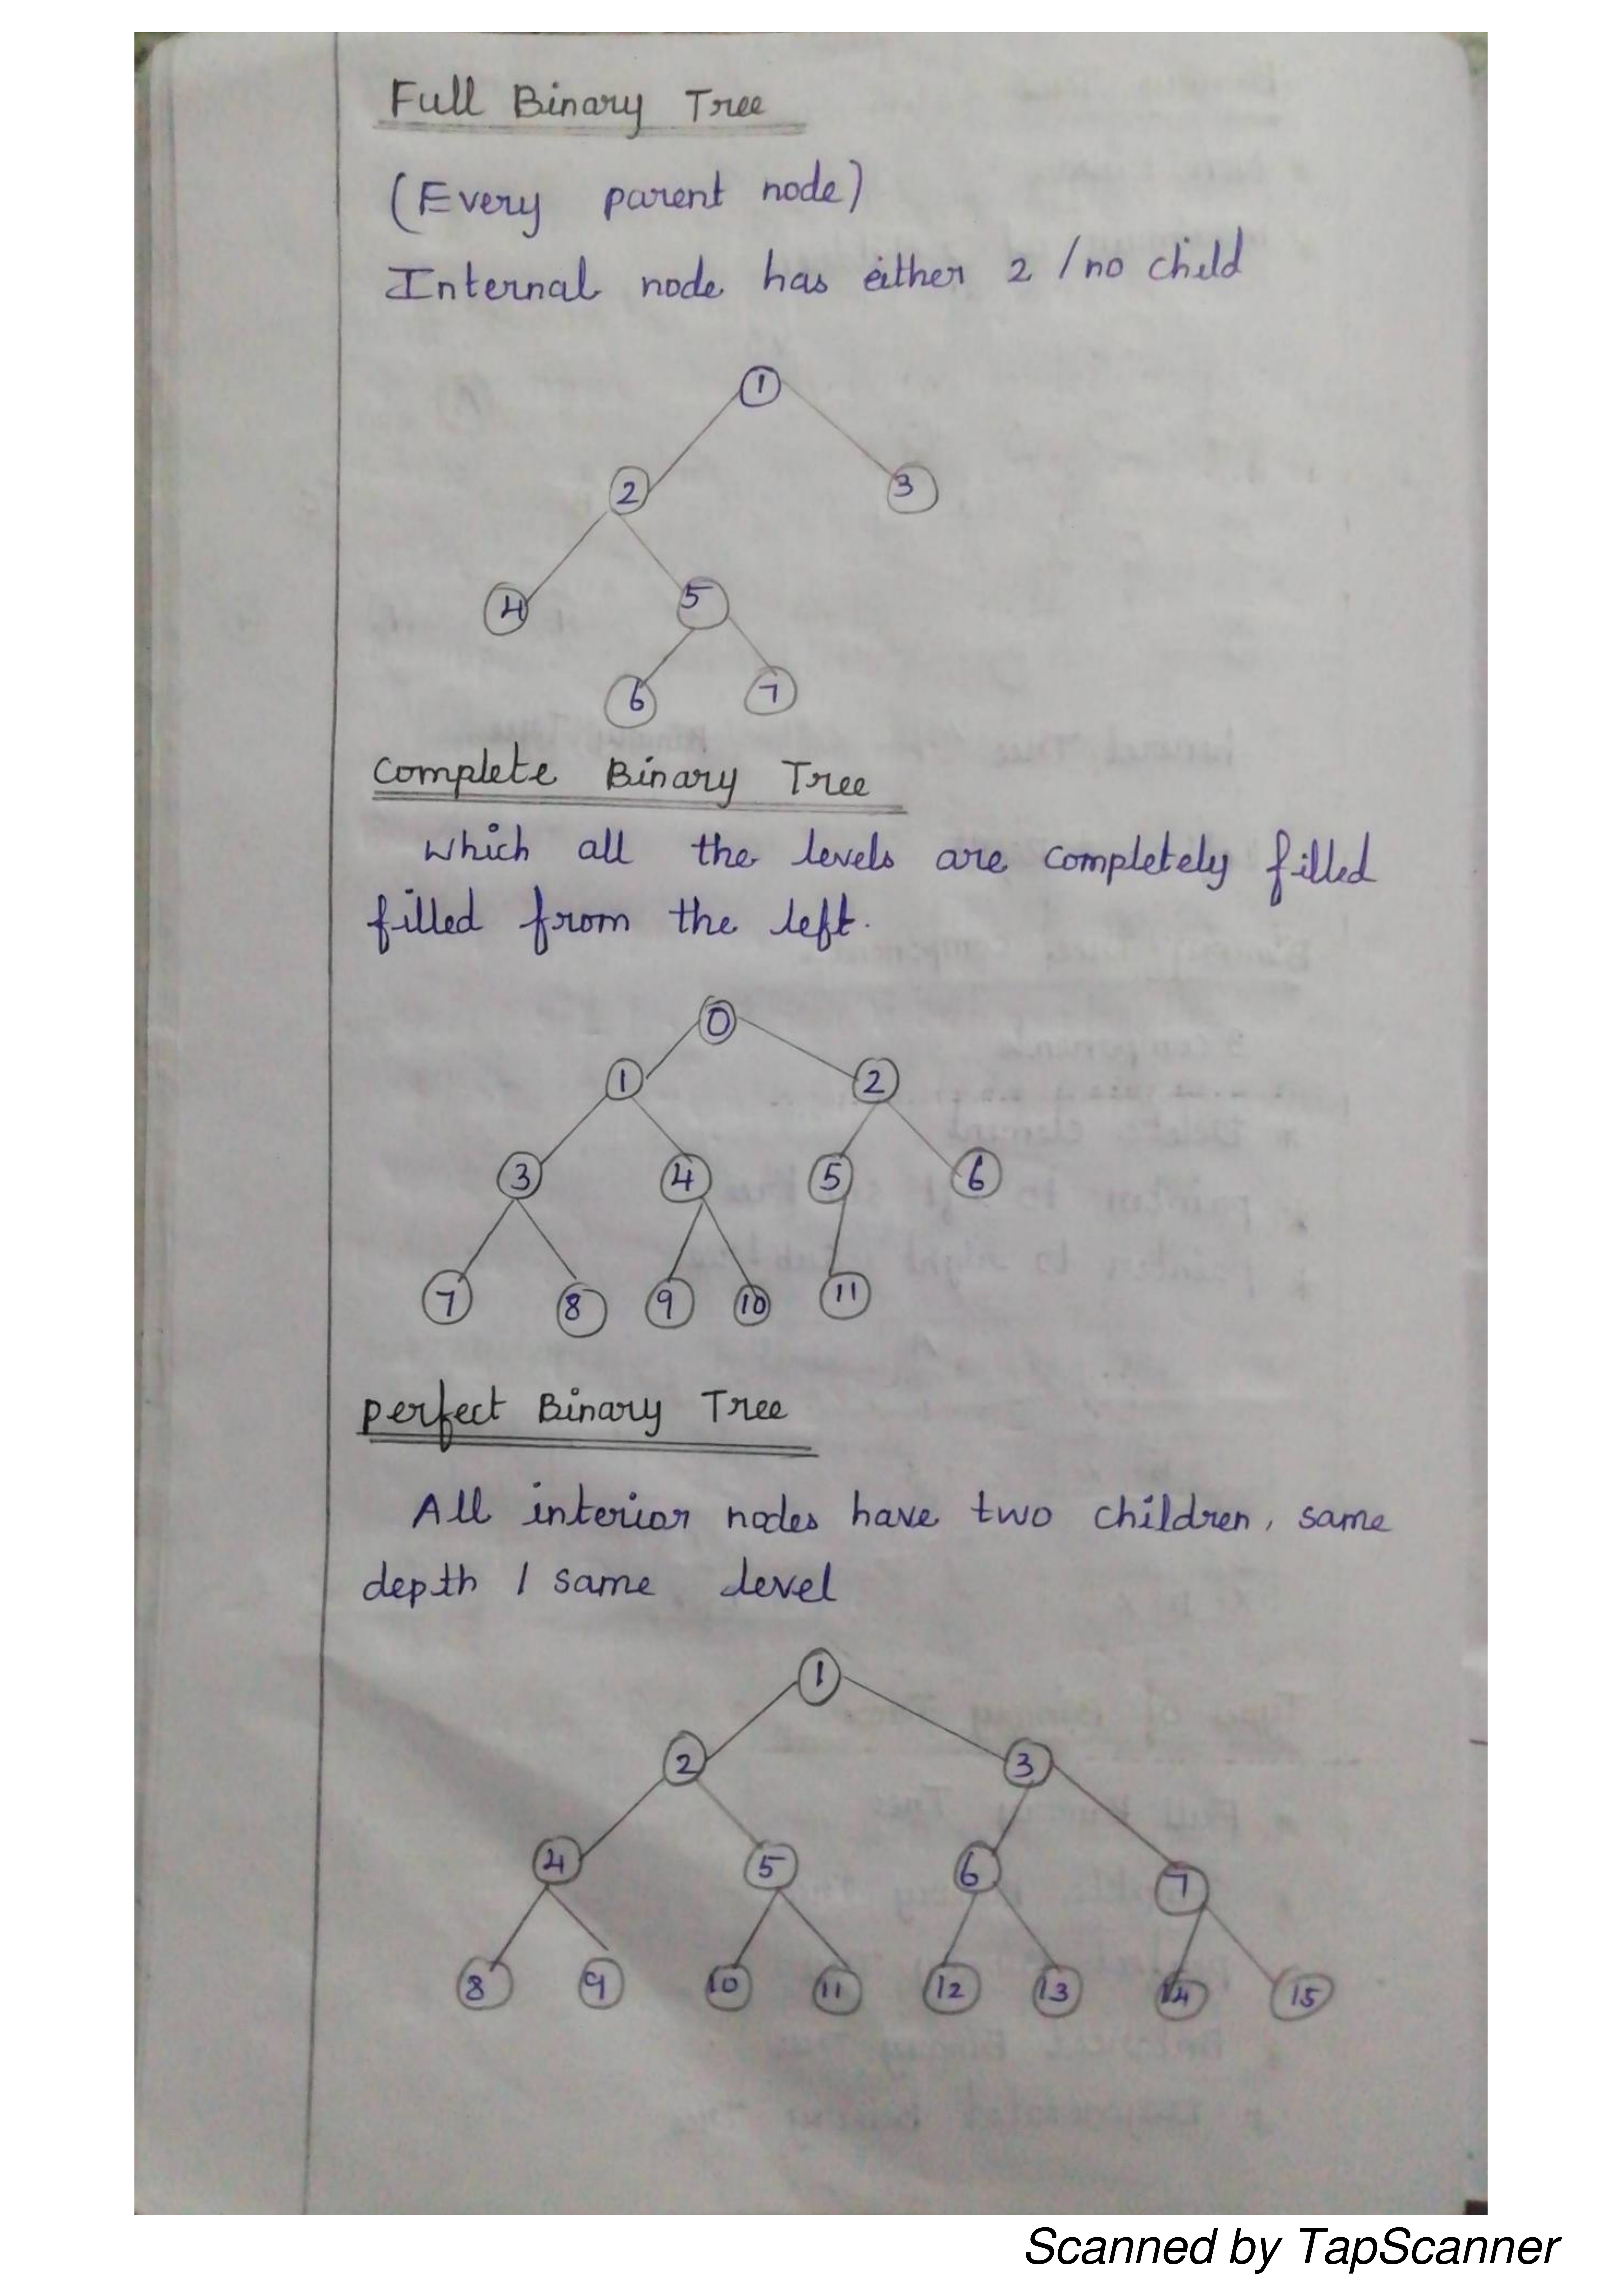 Full Binary Tree
(Every parent node)
Internal node has either 2 / no child
1
2 3
4 5
6 7
Complete Binary Tree
Which all the levels are completely filled
filled from the left.
0
1 2
3 4 5 6
7 8 9 10 11
perfect Binary Tree
All interior nodes have two children, same
depth / same level
1
2 3
4 5 6 7
8 9 10 11 12 13 14 15
Scanned by TapScanner